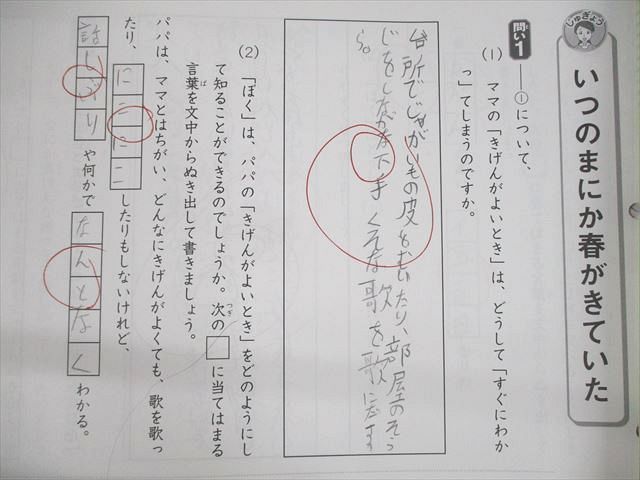 じゅぎょう
いつのまにか春がきていた
問い1
——①について、
(1) ママの「きげんがよいとき」は、どうして「すぐにわか
っ」てしまうのですか。
台所でじゃがいもの皮をむいたり、部屋のそう
じをしながら下手くそな歌を歌いだす
から。
(2) 「ぼく」は、パパの「きげんがよいとき」をどのようにし
て知ることができるのでしょうか。次の□に当てはまる
言葉を文中からぬき出して書きましょう。
パパは、ママとはちがい、どんなにきげんがよくても、歌を歌っ
たり、にこにこしたりもしないけれど、
話しぶりや何かでなんとなくわかる。